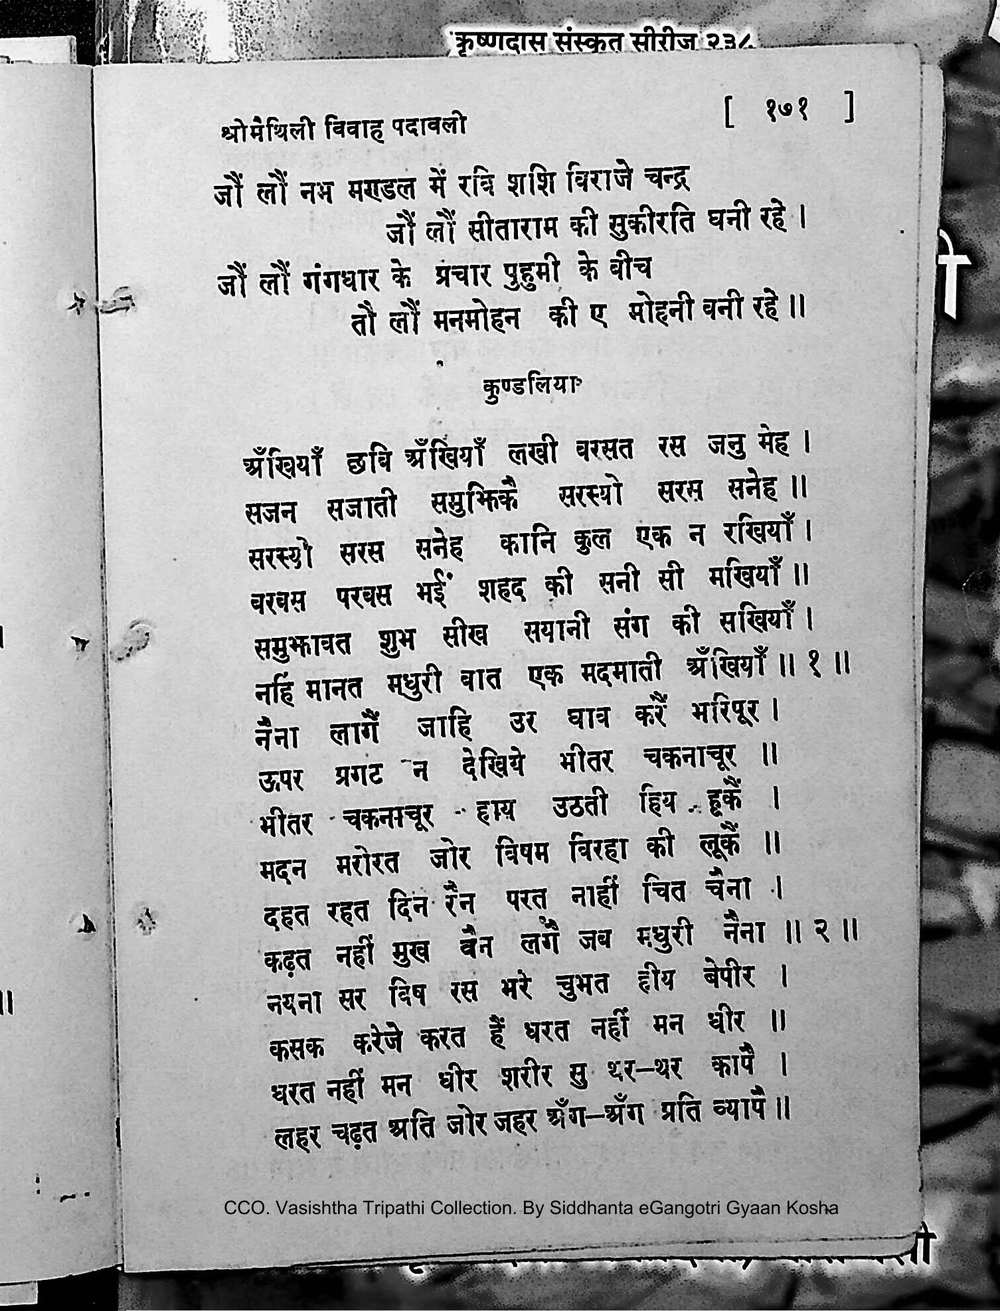 कृष्णदास संस्कृत सीरीज २३८
श्रीमैथिली विवाह पदावली [ १७१ ]
जौं लौं नभ मण्डल में रवि शशि विराजे चन्द्र
जौं लौं सीताराम की सुकीरति घनी रहे ।
जौं लौं गंगधार के प्रचार पुहुमी के बीच
तौ लौं मनमोहन की ए मोहनी वनी रहे ॥
कुण्डलिया
अँखियाँ छवि अँखियाँ लखी वरसत रस जनु मेह ।
सजन सजाती समुझिकै सरस्यो सरस सनेह ॥
सरस्यो सरस सनेह कानि कुल एक न रखियाँ ।
वरवस परवस भईं शहद की सनी सी मखियाँ ॥
समुझावत शुभ सीख सयानी संग की सखियाँ ।
नहिं मानत मधुरी वात एक मदमाती अँखियाँ ॥ १ ॥
नैना लागैं जाहि उर घाव करैं भरिपूर ।
ऊपर प्रगट न देखिये भीतर चकनाचूर ॥
भीतर चकनाचूर हाय उठती हिय हूकैं ।
मदन मरोरत जोर विषम विरहा की लूकैं ॥
दहत रहत दिन रैन परत नाहीं चित चैना ।
कढ़त नहीं मुख वैन लगैं जब मधुरी नैना ॥ २ ॥
नयना सर विष रस भरे चुभत हीय बेपीर ।
कसक करेजे करत हैं धरत नहीं मन धीर ॥
धरत नहीं मन धीर शरीर सु थर-थर कापै ।
लहर चढ़त अति जोर जहर अँग-अँग प्रति व्यापै ॥
CCO. Vasishtha Tripathi Collection. By Siddhanta eGangotri Gyaan Kosha